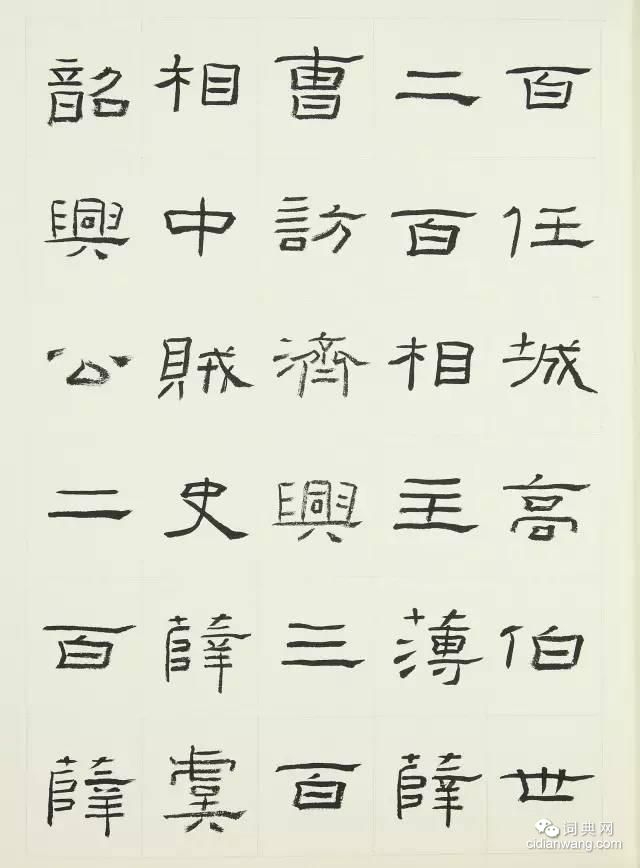 百任城高伯世
二百相主薄薛
曹訪濟興三百
相中賊史薛虞
韶興公二百薛
词典网
cidianwang.com